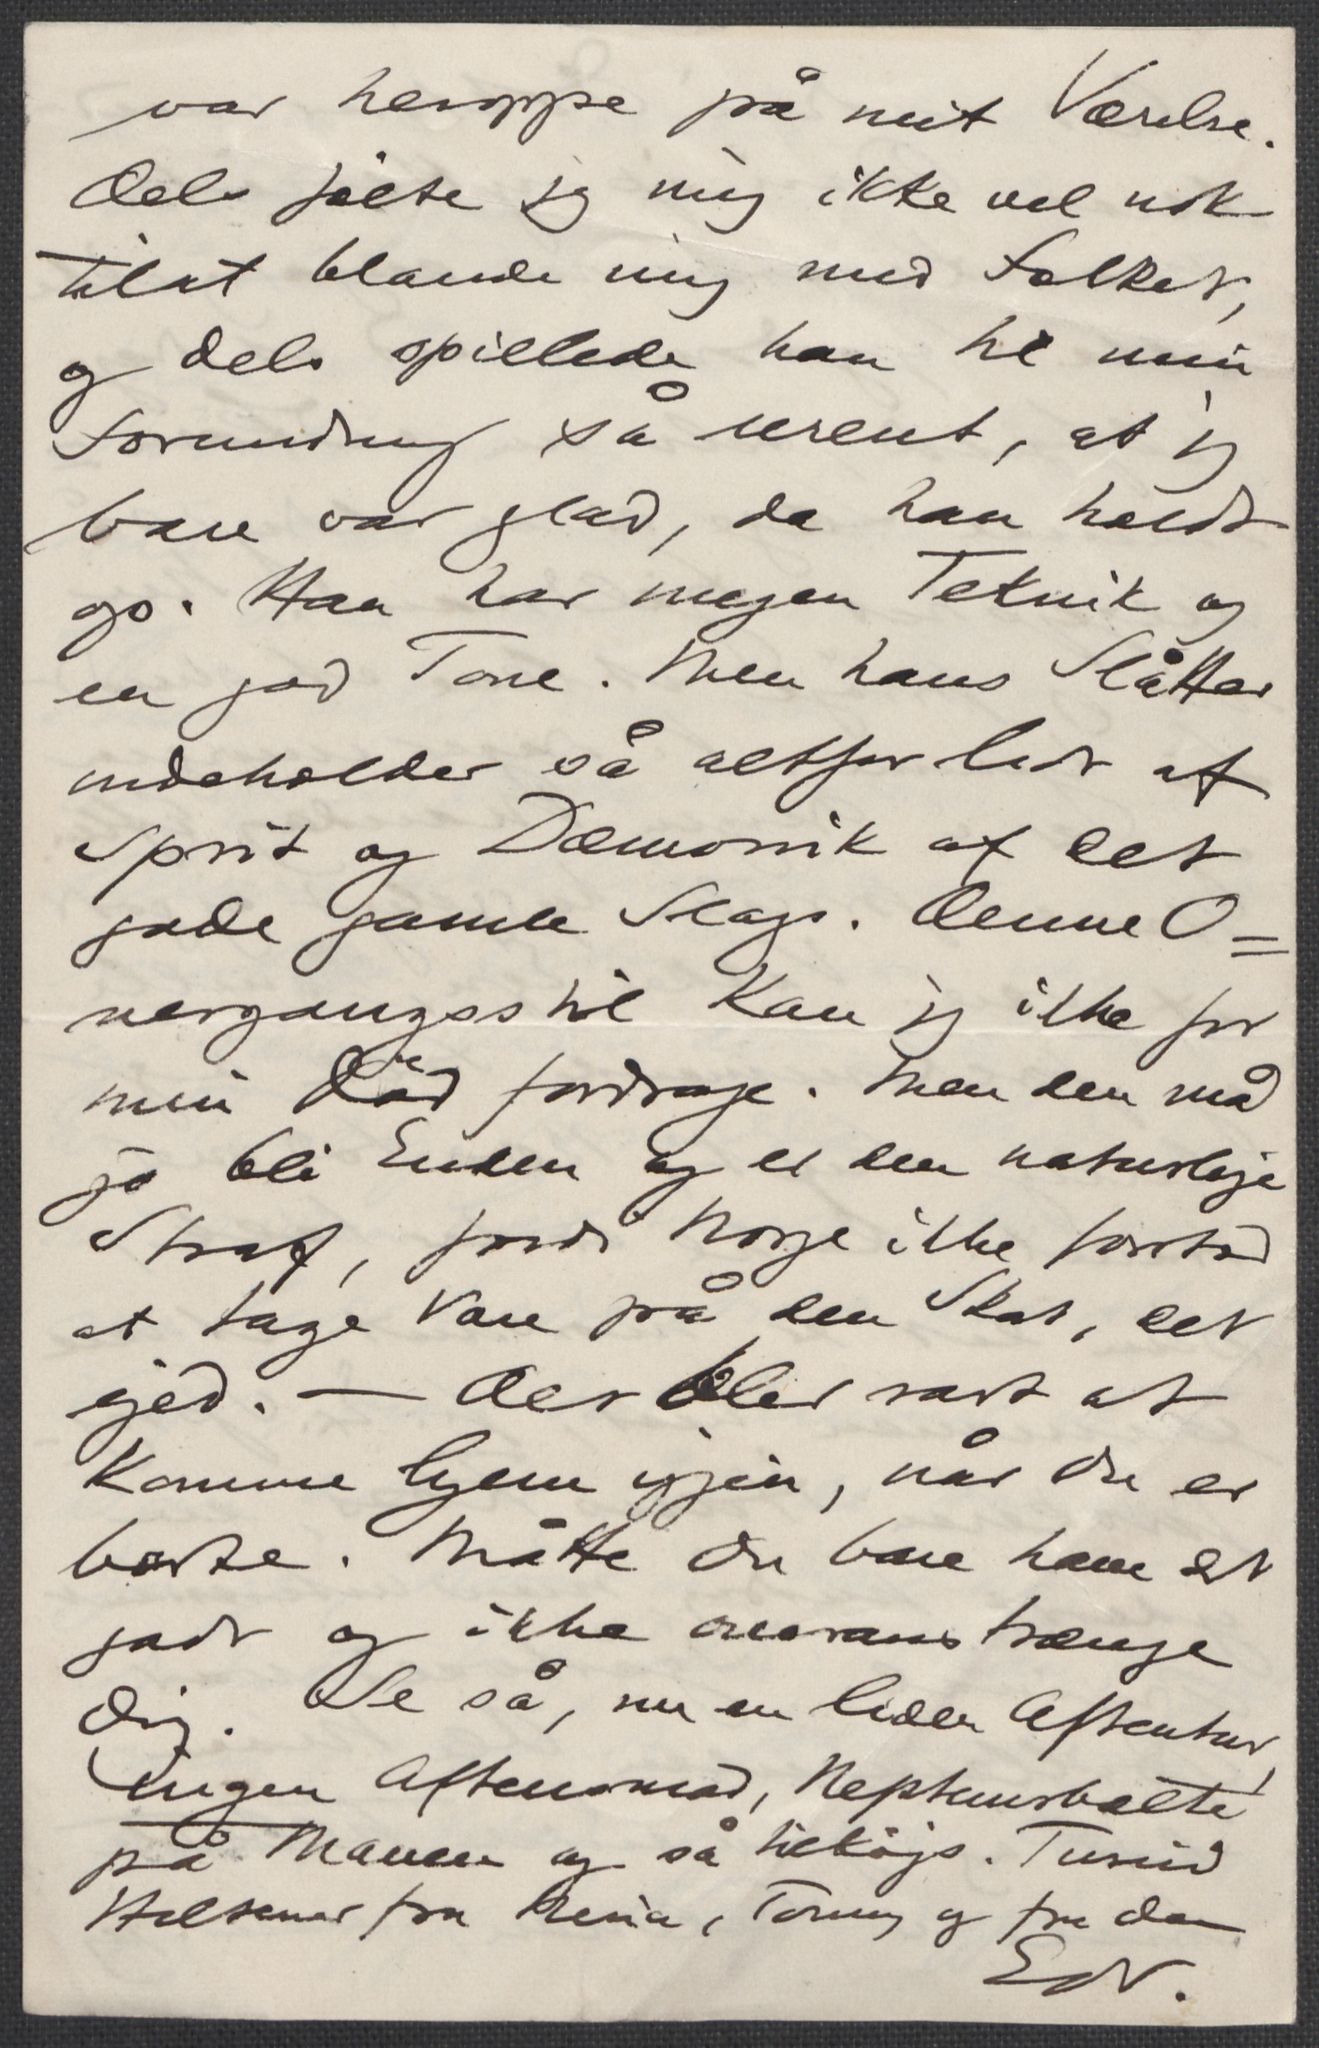 var heroppe på mit Værelse.
Dels følte jeg mig ikke vel nok
tilat blande mig med Folket,
og dels spillede han til min
Forundring så urent, at jeg
bare var glad, da han holdt
op. Han har megen Teknik og
en god Tone. Men hans Slåtter
indeholder så altfor lidt af
Sprit og Dæmonik af det
gode gamle Slags. Denne O=
vergangsstil kan jeg ikke for
min Død fordrage. Men den må
jo bli Enden og er den naturlige
Straf, fordi Norge ikke forstod
at tage Vare på den Skat, det
ejed. — Det blir rart at
komme hjem igjen, når Du er
borte. Måtte Du bare have det
godt og ikke overanstrænge
Dig. Se så, nu en liden Aftentur,
ingen Aftensmad, Neptunsbælte
på Maven og så tilkøjs. Tusind
Hilsener fra Nina, Tonny og fra Den
Edv.